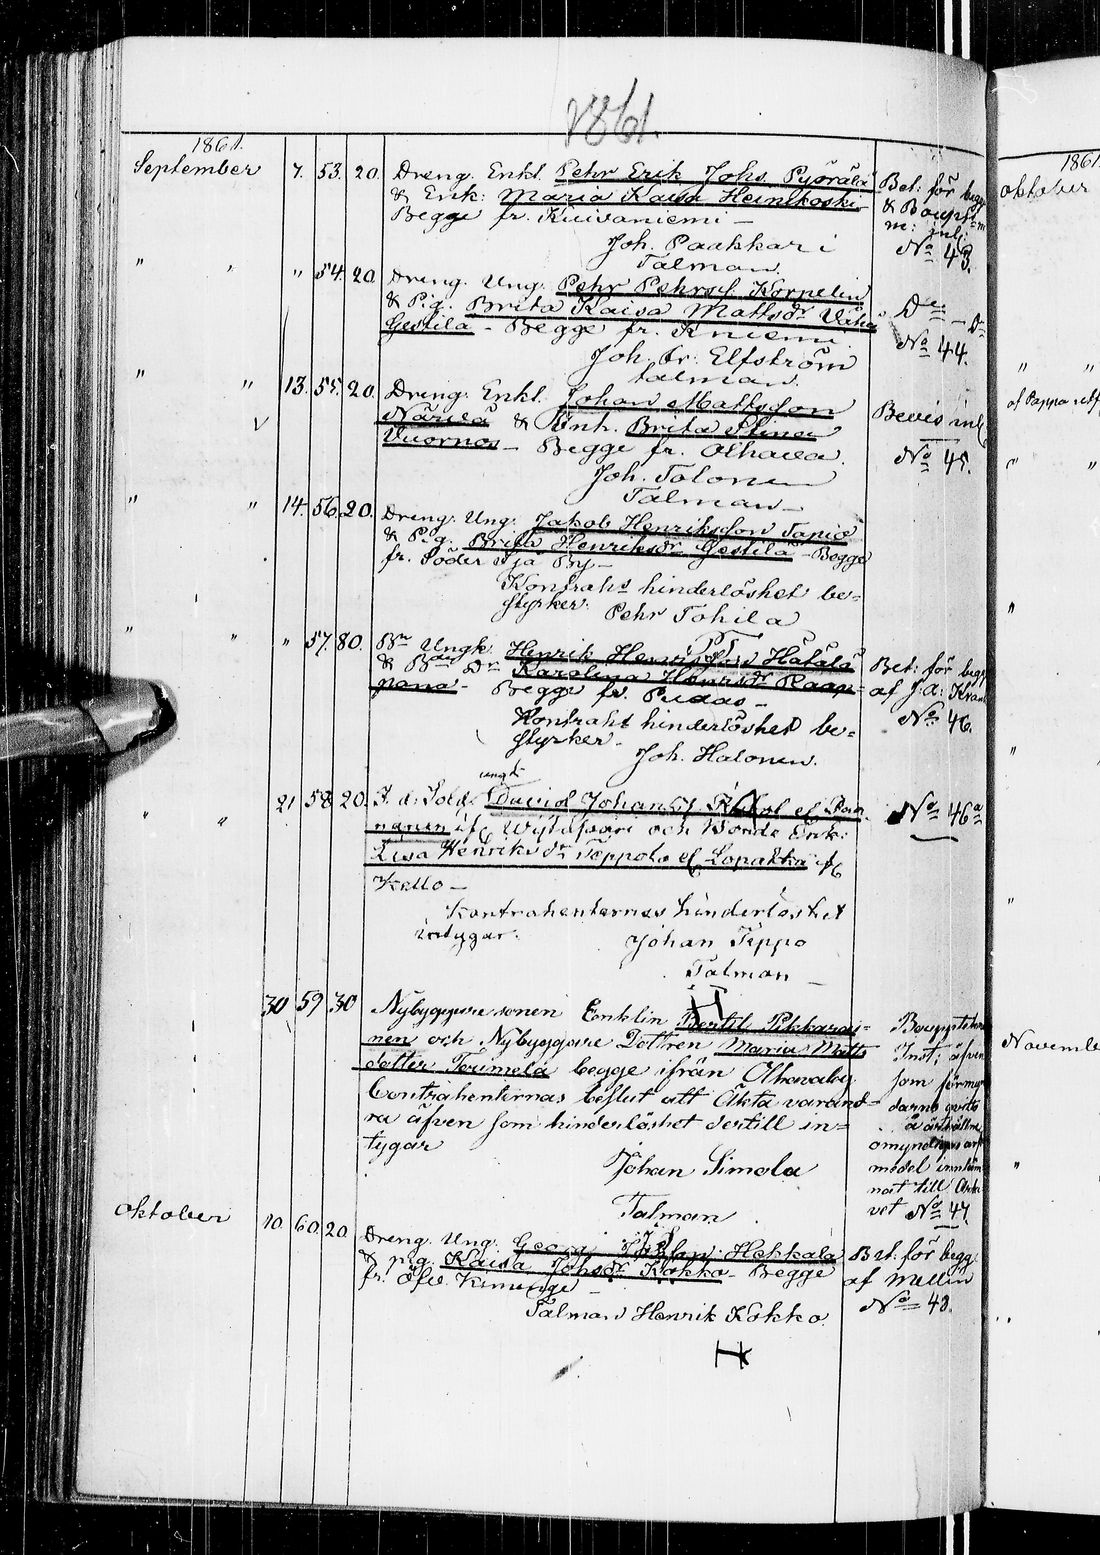 1861.
1861.
September 7. 53. 20. Dreng. Enkl. Pehr Erik Johs. Pyörälä
& Enk: Maria Kaisa Heinikoski
Begge fr. Kuivaniemi —
Joh. Paakkari
Talman.
Bet: för begge
& Boupt
m: julj
No 43.
" " " 54. 20. Dreng. Ung. Pehr Pehrss. Korpelin
& Pig. Brita Kaisa Mattsdr Väha
Gestila — Begge fr. Kniemi
Joh. Er. Elfström
talman.
Do — Do
No 44.
" " 13. 55. 20. Dreng. Enkl. Johan Mattsson
Närilä & Enk. Brita Stina
Vuornos — Begge fr. Olhava.
Joh. Tolonen
Talman —
Bevis inl
No 45.
" " 14. 56. 20. Dreng. Ung. Jakob Henriksson Tapio
& Pig. Brita Henriksdr Gestila — Begge
fr. Söder Ijå By —
Kontrahs hinderlöshet be=
styrker: Pehr Tohila
" " " 57. 80. Bn Ungk. Henrik Henriksson Hätälä
& Bde Dr Karolina Henrsdr Raap=
pana — Begge fr. Pudas —
Kontraht hinderlöshet be=
styrker — Joh. Halonen.
Bet: för begg
af J. A: Kran
No 46.
" " 21 58 20. F. d: Sold. ungk David Johanss.
och Bonde Enk:
Lisa Henriksdr Teppola el. Lopakka
Kello —
Kontrahenternas hinderlöshet
intygar. Johan Teppo
Talman —
No 46a
30 59 30 Nybyggare sonen Enklin Bertil Pikkarai=
nen och Nybyggare Dottren Maria Matts
dotter Tuomela begge ifrån Olhavaby
Contrahenternas beslut att Äkta varand=
ra äfven som hinderlöshet dertill in=
tygar
Johan Simola
Talman
Bouppteckn
Inst; äfven
som förmyn
darns qvitto
å
omyndiges arf
medel inneläm
nat till Arki
vet No 47.
Oktober 10. 60. 20. Dreng. Ung. Georg Hekkala
& pig. Kaisa Johsdr Kokko — Begge
fr. Öfve. Kiminge —
Talman Henrik Kokko.
Bet. för begg.
af Mellin
No 48.
1861
Oktober
November